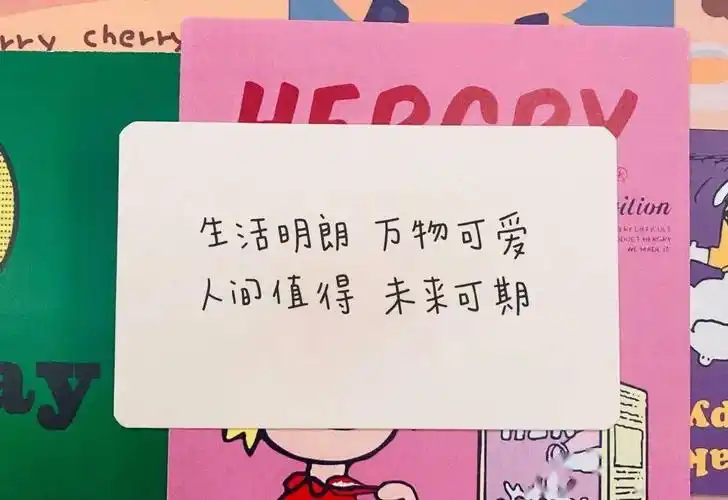 cherry
HERGRY
®
生活明朗 万物可爱
人间值得 未来可期
ay